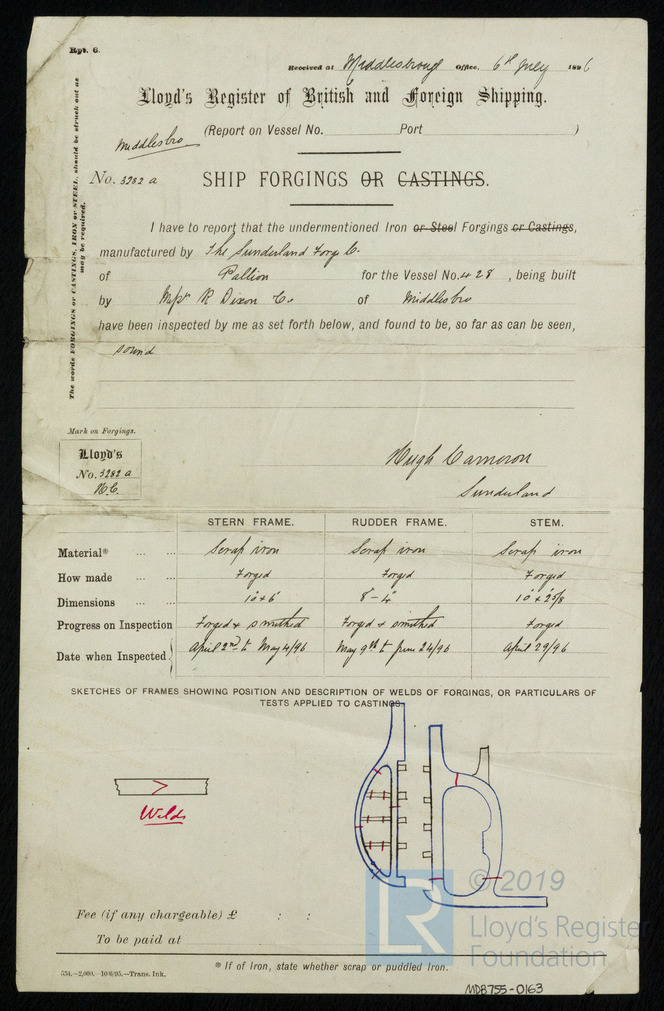 Rpt. 6.
Received at Middlesbrough Office, 6th July 1896
Lloyd's Register of British and Foreign Shipping.
(Report on Vessel No. Port )
Middlesbro
No. 3282 a SHIP FORGINGS OR CASTINGS.
The words FORGINGS or CASTINGS, IRON or STEEL, should be struck out as may be required.
I have to report that the undermentioned Iron or Steel Forgings or Castings,
manufactured by The Sunderland Forge Co.
of Pallion for the Vessel No. 428, being built
by Messrs R Dixon & Co. of Middlesbro
have been inspected by me as set forth below, and found to be, so far as can be seen,
sound
Mark on Forgings.
Lloyd's
No. 3282 a
H.C.
Hugh Cameron
Sunderland
STERN FRAME. RUDDER FRAME. STEM.
Material* ... ... Scrap iron Scrap iron Scrap iron
How made ... ... Forged Forged Forged
Dimensions ... ... 10" x 6" 8" - 4" 10" x 2 5/8
Progress on Inspection Forged & smithed Forged & smithed Forged
Date when Inspected April 2nd to May 4/96 May 9th to June 24/96 April 29/96
SKETCHES OF FRAMES SHOWING POSITION AND DESCRIPTION OF WELDS OF FORGINGS, OR PARTICULARS OF
TESTS APPLIED TO CASTINGS.
Welds
Fee (if any chargeable) £ : :
To be paid at
© 2019
LR
Lloyd's Register
Foundation
* If of Iron, state whether scrap or puddled Iron.
554.—2,000.—10/6/95.—Trans. Ink.
MDB755-0163